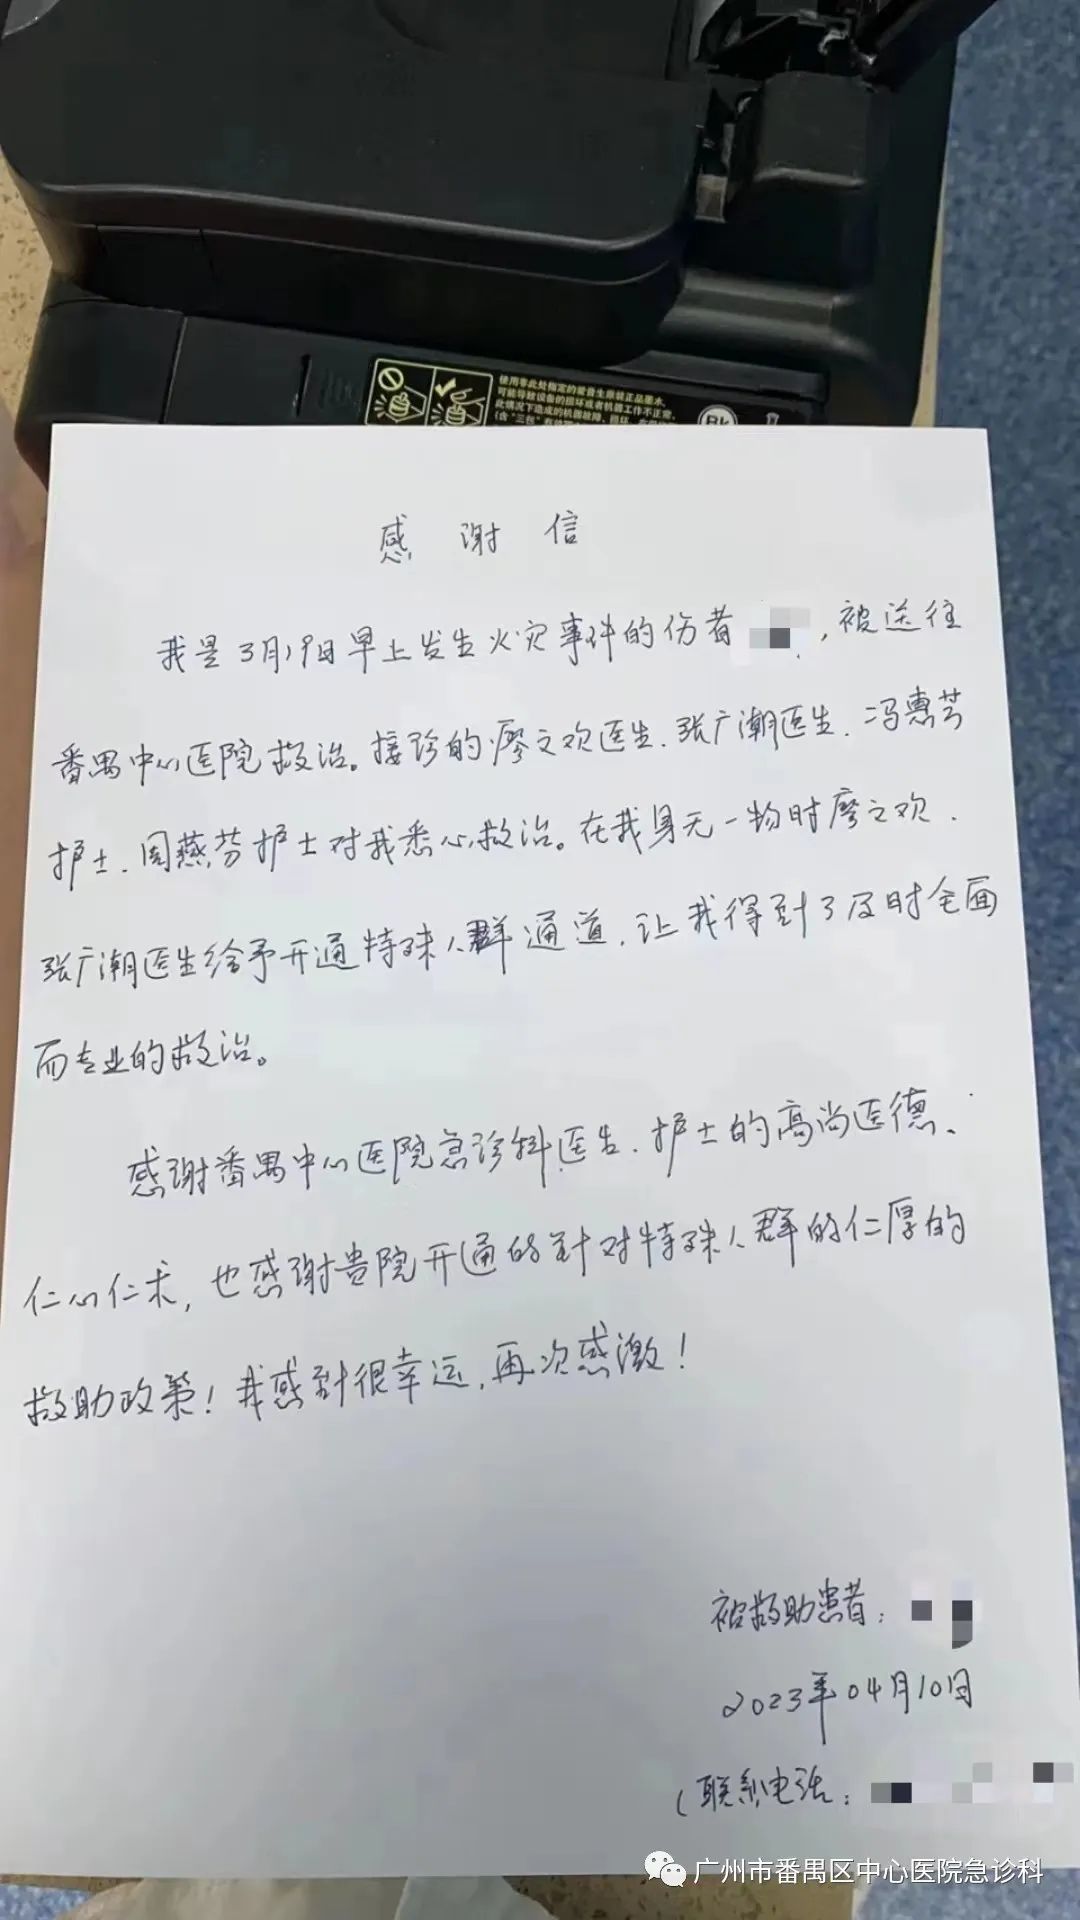 使用零此处指定的爱普生原装正品墨水，
可能导致设备的损坏或者机器工作不正常，
此情况下造成的机器故障、损坏，
Bk
感谢信
我是3月19日早上发生火灾事件的伤者，被送往
番禺中心医院救治。接诊的廖文欢医生、张广潮医生、冯惠芳
护士、周燕芬护士对我悉心救治。在我身无一物时廖文欢、
张广潮医生给予开通特殊人群通道，让我得到了及时全面
而专业的救治。
感谢番禺中心医院急诊科医生、护士的高尚医德、
仁心仁术，也感谢贵院开通的针对特殊人群的仁厚的
救助政策！我感到很幸运，再次感激！
被救助患者：
2023年04月10日
（联系电话：
广州市番禺区中心医院急诊科